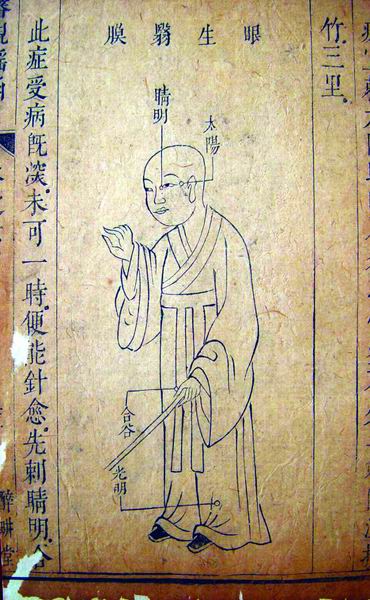 竹。三里。
眼生翳膜
太陽
睛明
合谷
光明
此症受病既深。未可一時便能針愈。先刺睛明。合
醉畊堂